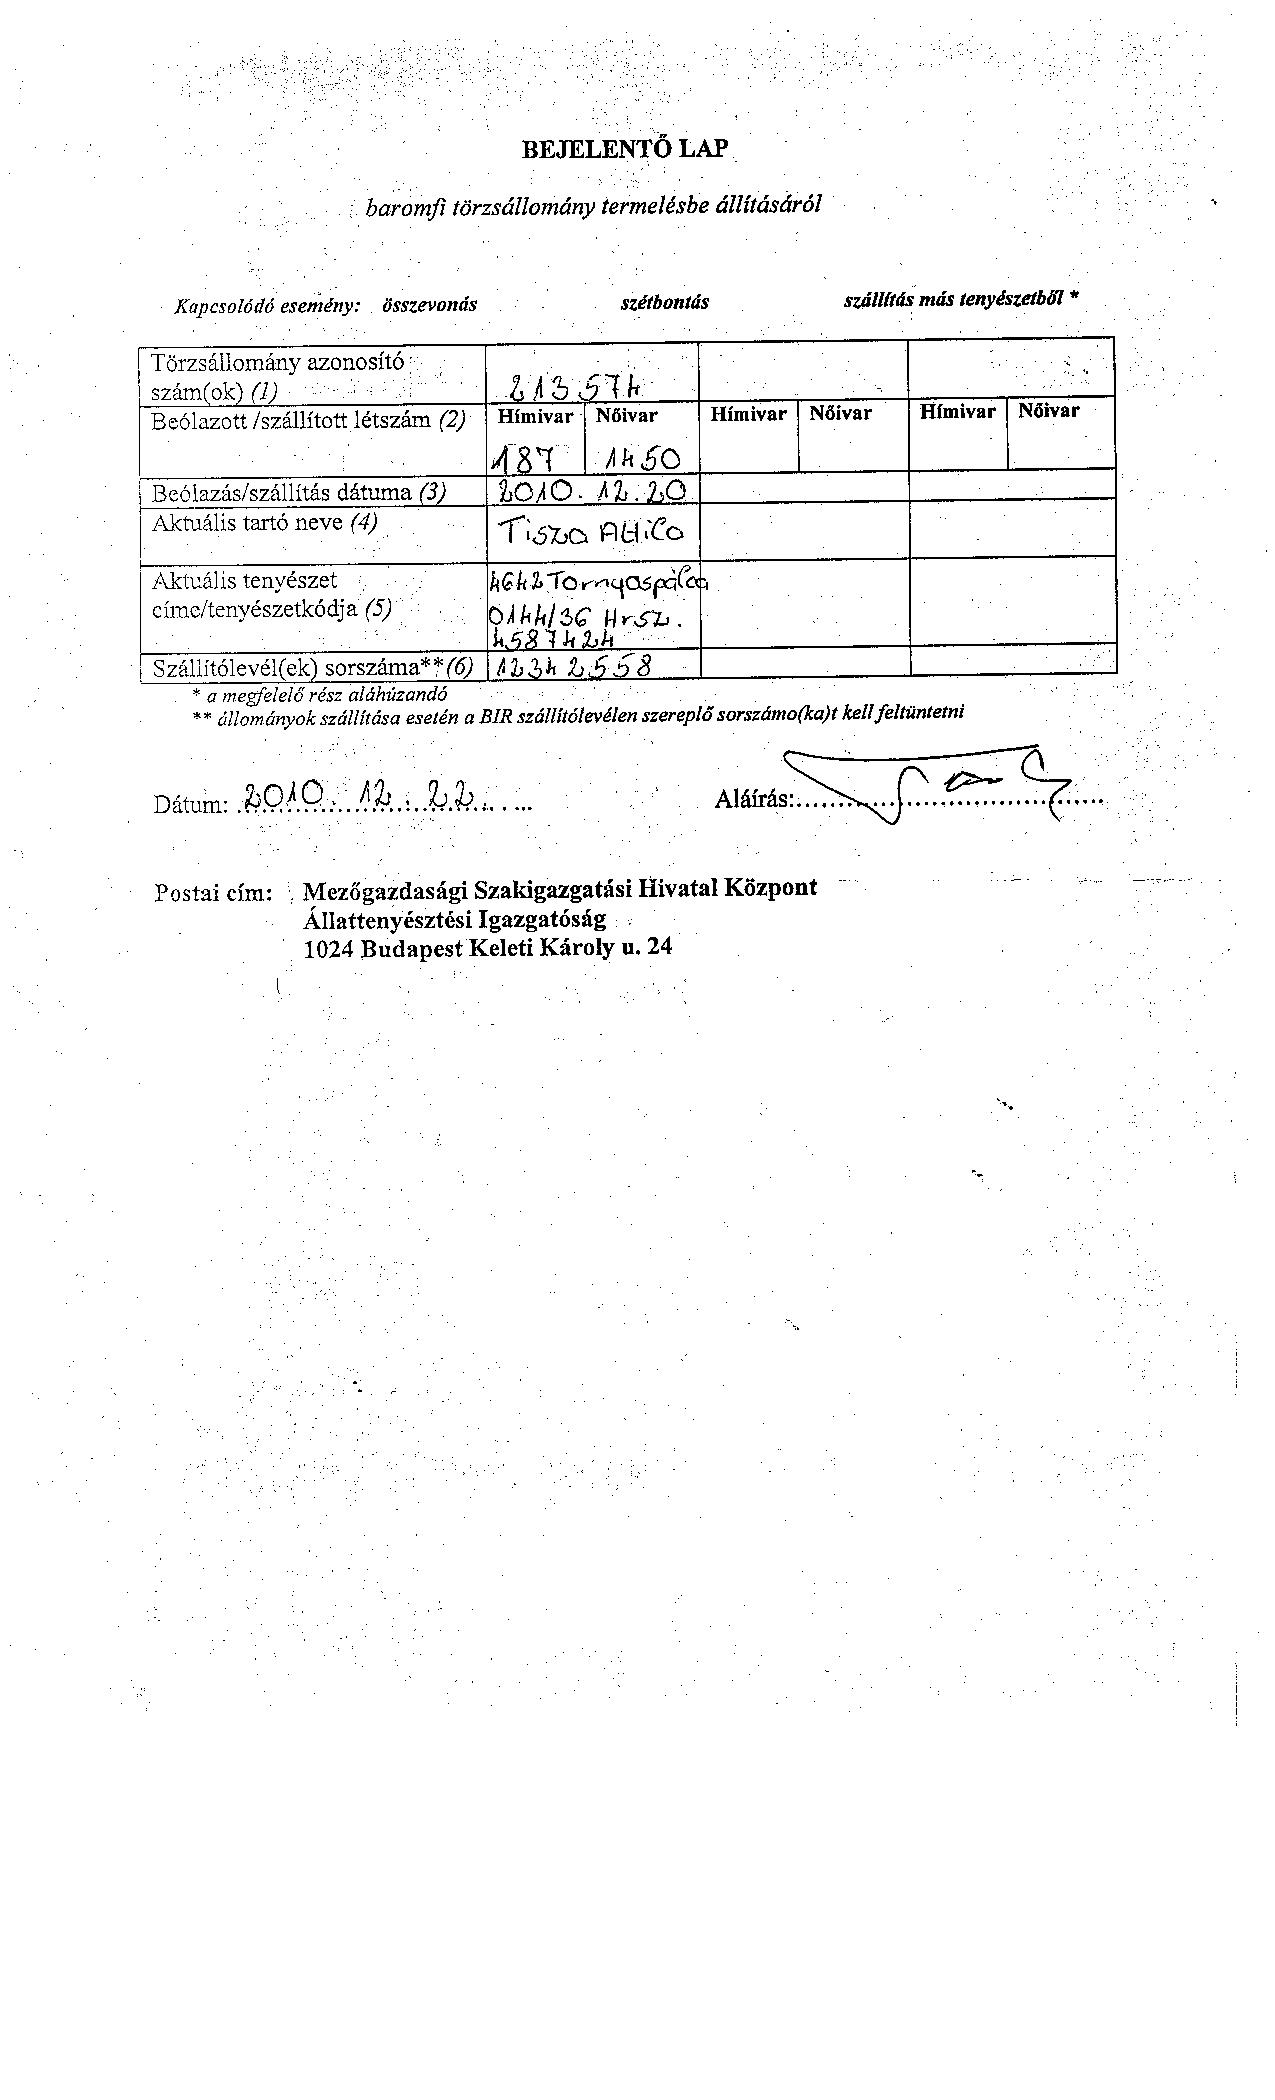 BEJELENTŐ LAP
baromfi törzsállomány termelésbe állításáról
Kapcsolódó esemény: összevonás szétbontás szállítás más tenyészetből *
Törzsállomány azonosító
szám(ok) (1) 213574
Beólazott /szállított létszám (2) Hímivar Nőivar Hímivar Nőivar Hímivar Nőivar
187 1450
Beólazás/szállítás dátuma (3) 2010. 12. 20
Aktuális tartó neve (4) Tisza Attila
Aktuális tenyészet 4642 Tornyospálca
címe/tenyészetkódja (5) 0144/36 Hrsz.
4587424
Szállítólevél(ek) sorszáma**(6) 12342558
* a megfelelő rész aláhúzandó
** állományok szállítása esetén a BIR szállítólevélen szereplő sorszámo(ka)t kell feltüntetni
Dátum: 2010. 12. 22. Aláírás:
Postai cím: Mezőgazdasági Szakigazgatási Hivatal Központ
Állattenyésztési Igazgatóság
1024 Budapest Keleti Károly u. 24